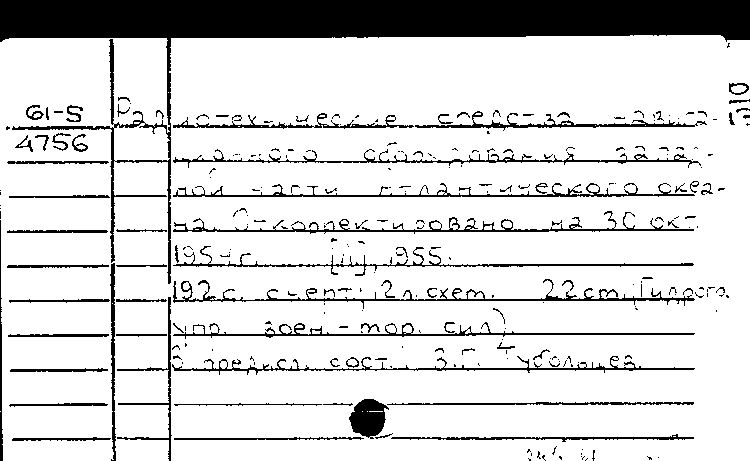 61-5 Радиотехнические средства навига-
4756 ционного оборудования запад-
ной части Атлантического океа-
на. Откорректировано на 30 окт.
1954г. [Л.], 1955.
192 с. с черт.; 2 л. схем. 22 см. (Гидрогр.
упр. воен.-мор. сил).
В предисл. сост.